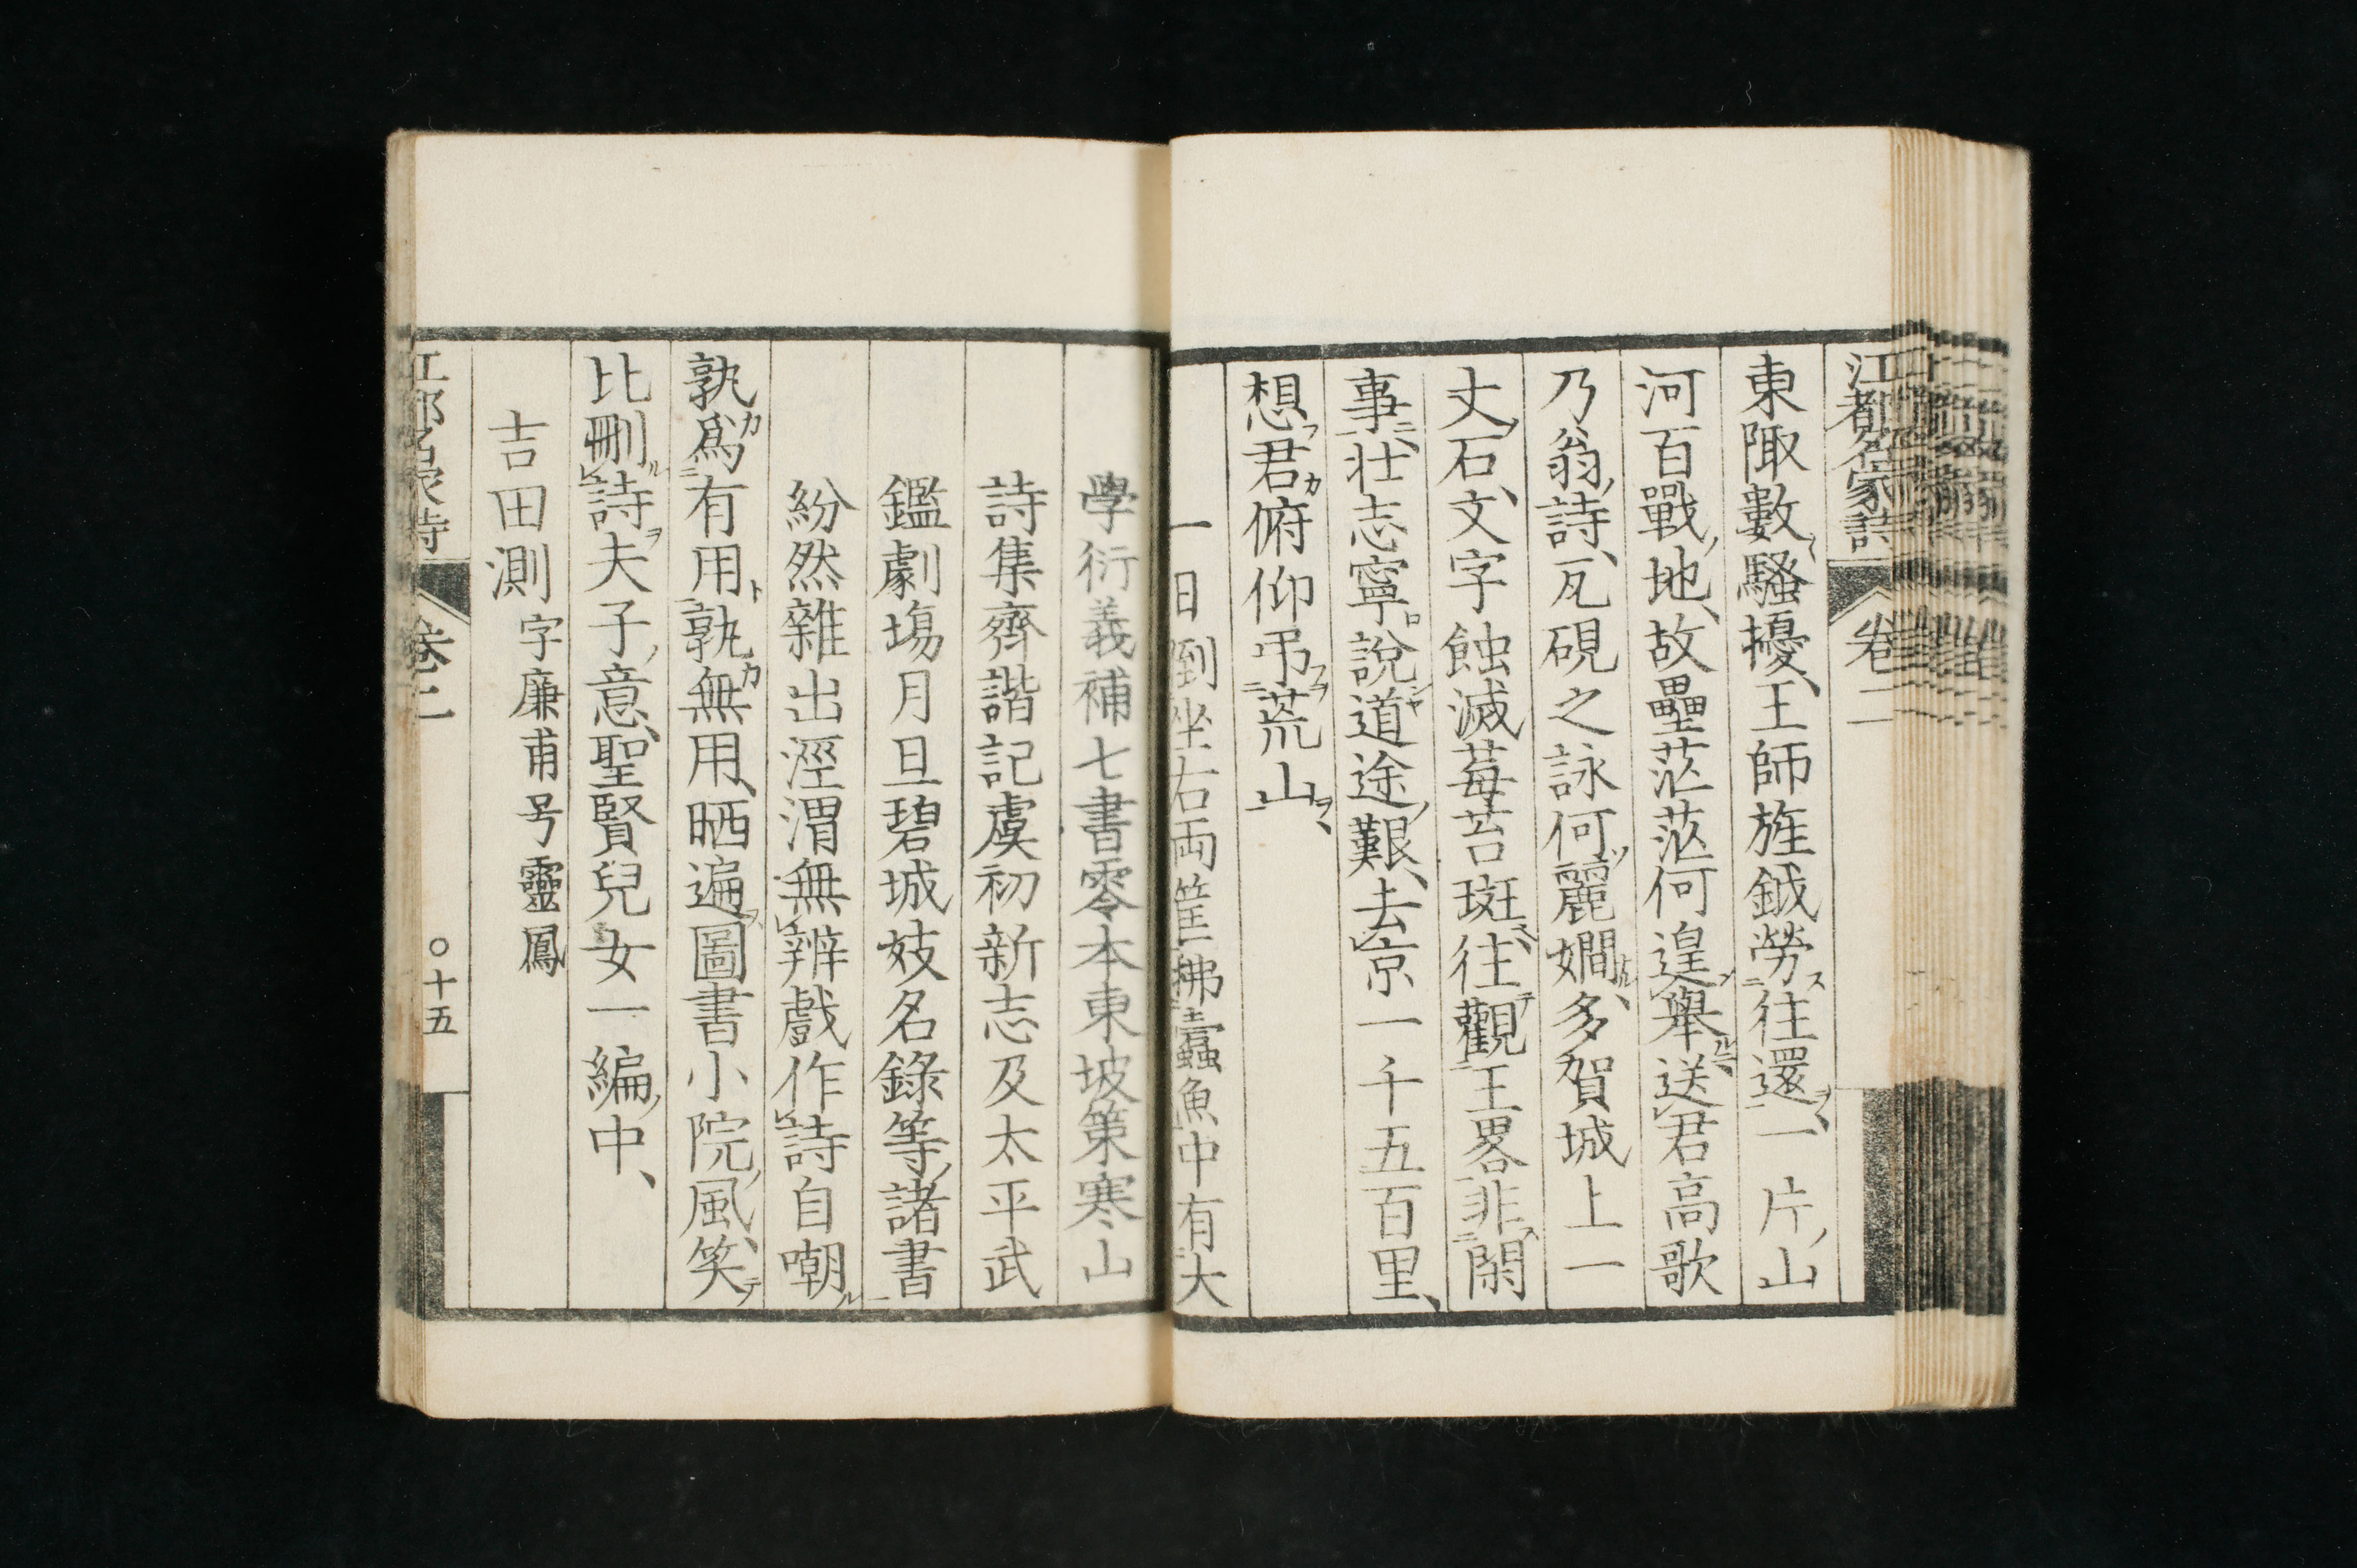 江都名家詩 卷二
東陬數騷擾、王師旌鉞勞往還、一片山
河百戰地、故壘茫茫何遑舉、送君高歌
乃翁詩、瓦硯之詠何麗嫺、多賀城上一
丈石、文字蝕滅莓苔斑、往觀王畧非閑
事、壯志寧說道途艱、去京一千五百里、
想君俯仰弔荒山、
一日倒坐右両筐拂蠹魚中有大
學衍義補七書零本東坡策寒山
詩集齊諧記虞初新志及太平武
鑑劇塲月旦碧城妓名錄等諸書
紛然雜出涇渭無辨戲作詩自嘲
孰爲有用孰無用、晒遍圖書小院風、笑
比刪詩夫子意、聖賢兒女一編中、
吉田測 字廉甫号靈鳳
江都名家詩 卷二 〇十五